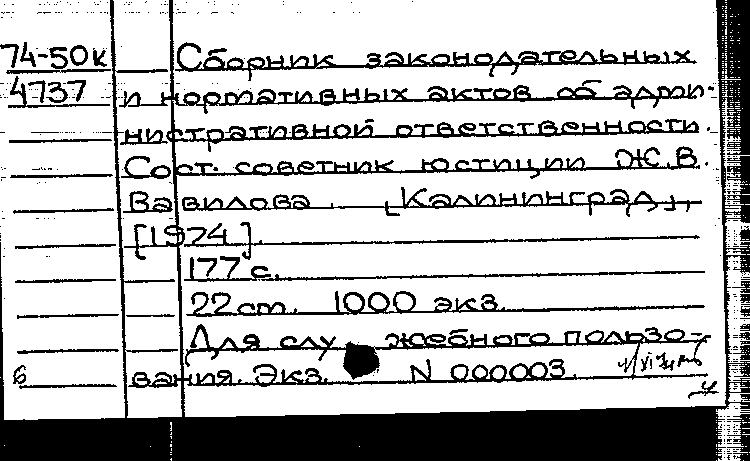 74-50к Сборник законодательных
4737 и нормативных актов об адми-
нистративной ответственности.
Сост. советник юстиции Ж.В.
Вавилова. [Калининград],
[1974].
177 с.
22 cm. 1000 экз.
Для служебного пользо-
6 вания. Экз. N 000003.